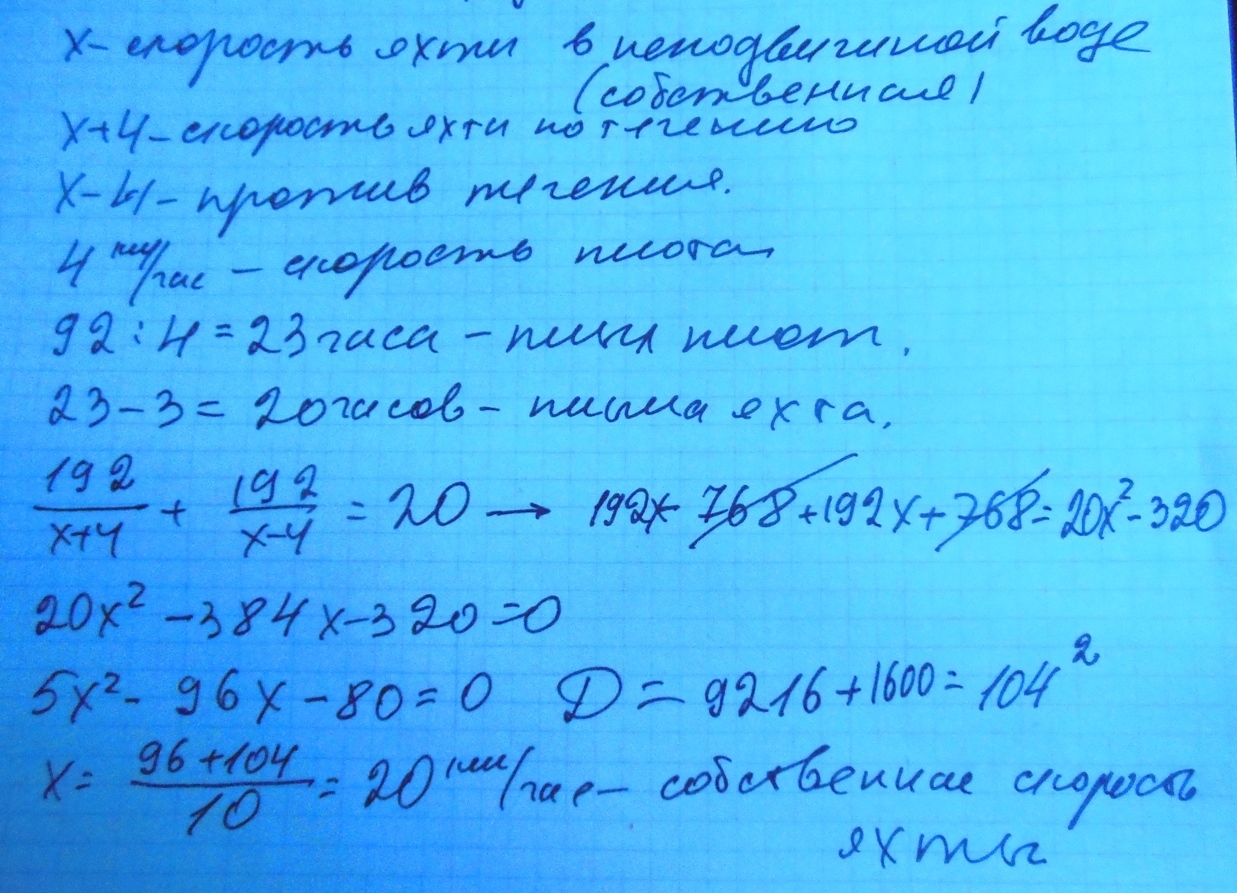 x - скорость яхти в неподвижной воде
(собственная)
x+4 - скорость яхти по течению
x-4 - против течения.
4 км/час - скорость плота
92 : 4 = 23 часа - плыл плот.
23 - 3 = 20 часов - плыла яхта.
192/(x+4) + 192/(x-4) = 20 → 192x - 768 + 192x + 768 = 20x² - 320
20x² - 384x - 320 = 0
5x² - 96x - 80 = 0 D = 9216 + 1600 = 104²
x = (96+104)/10 = 20 км/час - собственная скорость
яхты